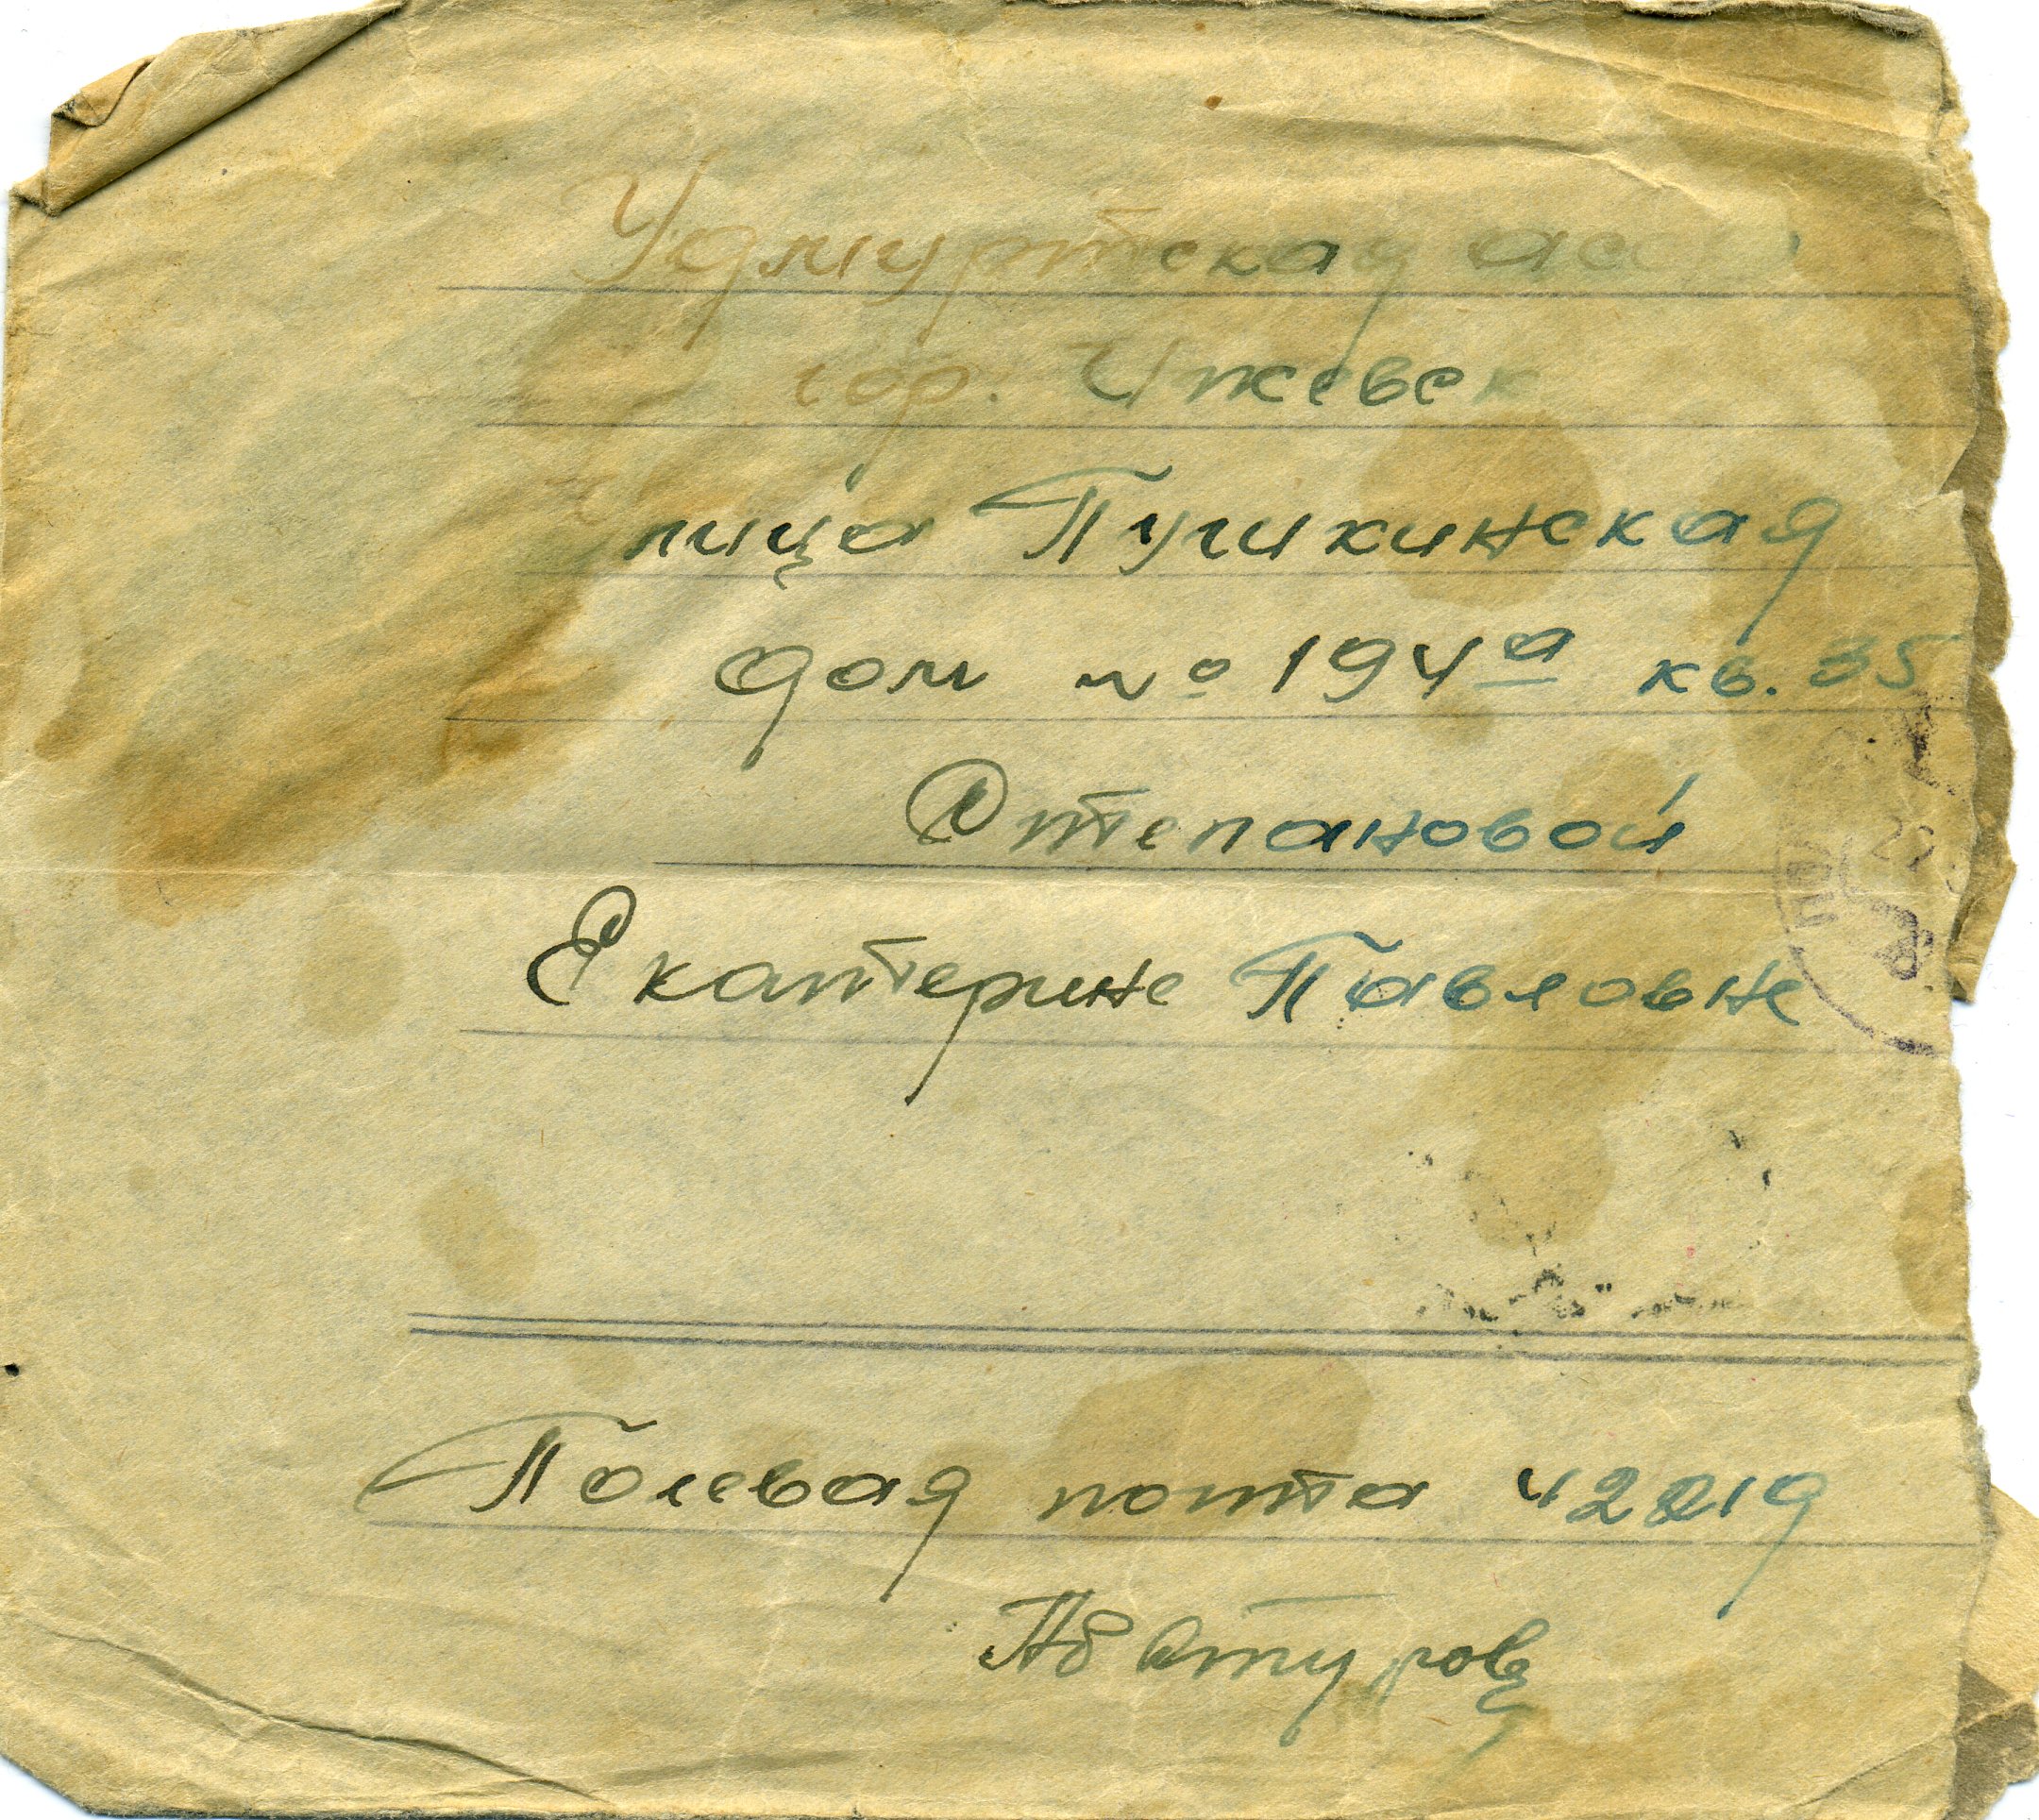 Удмуртская асср
гор. Ижевск
улица Пушкинская
дом № 194а кв. 35
Степановой
Екатерине Павловне
Полевая почта 42219
Абатуров